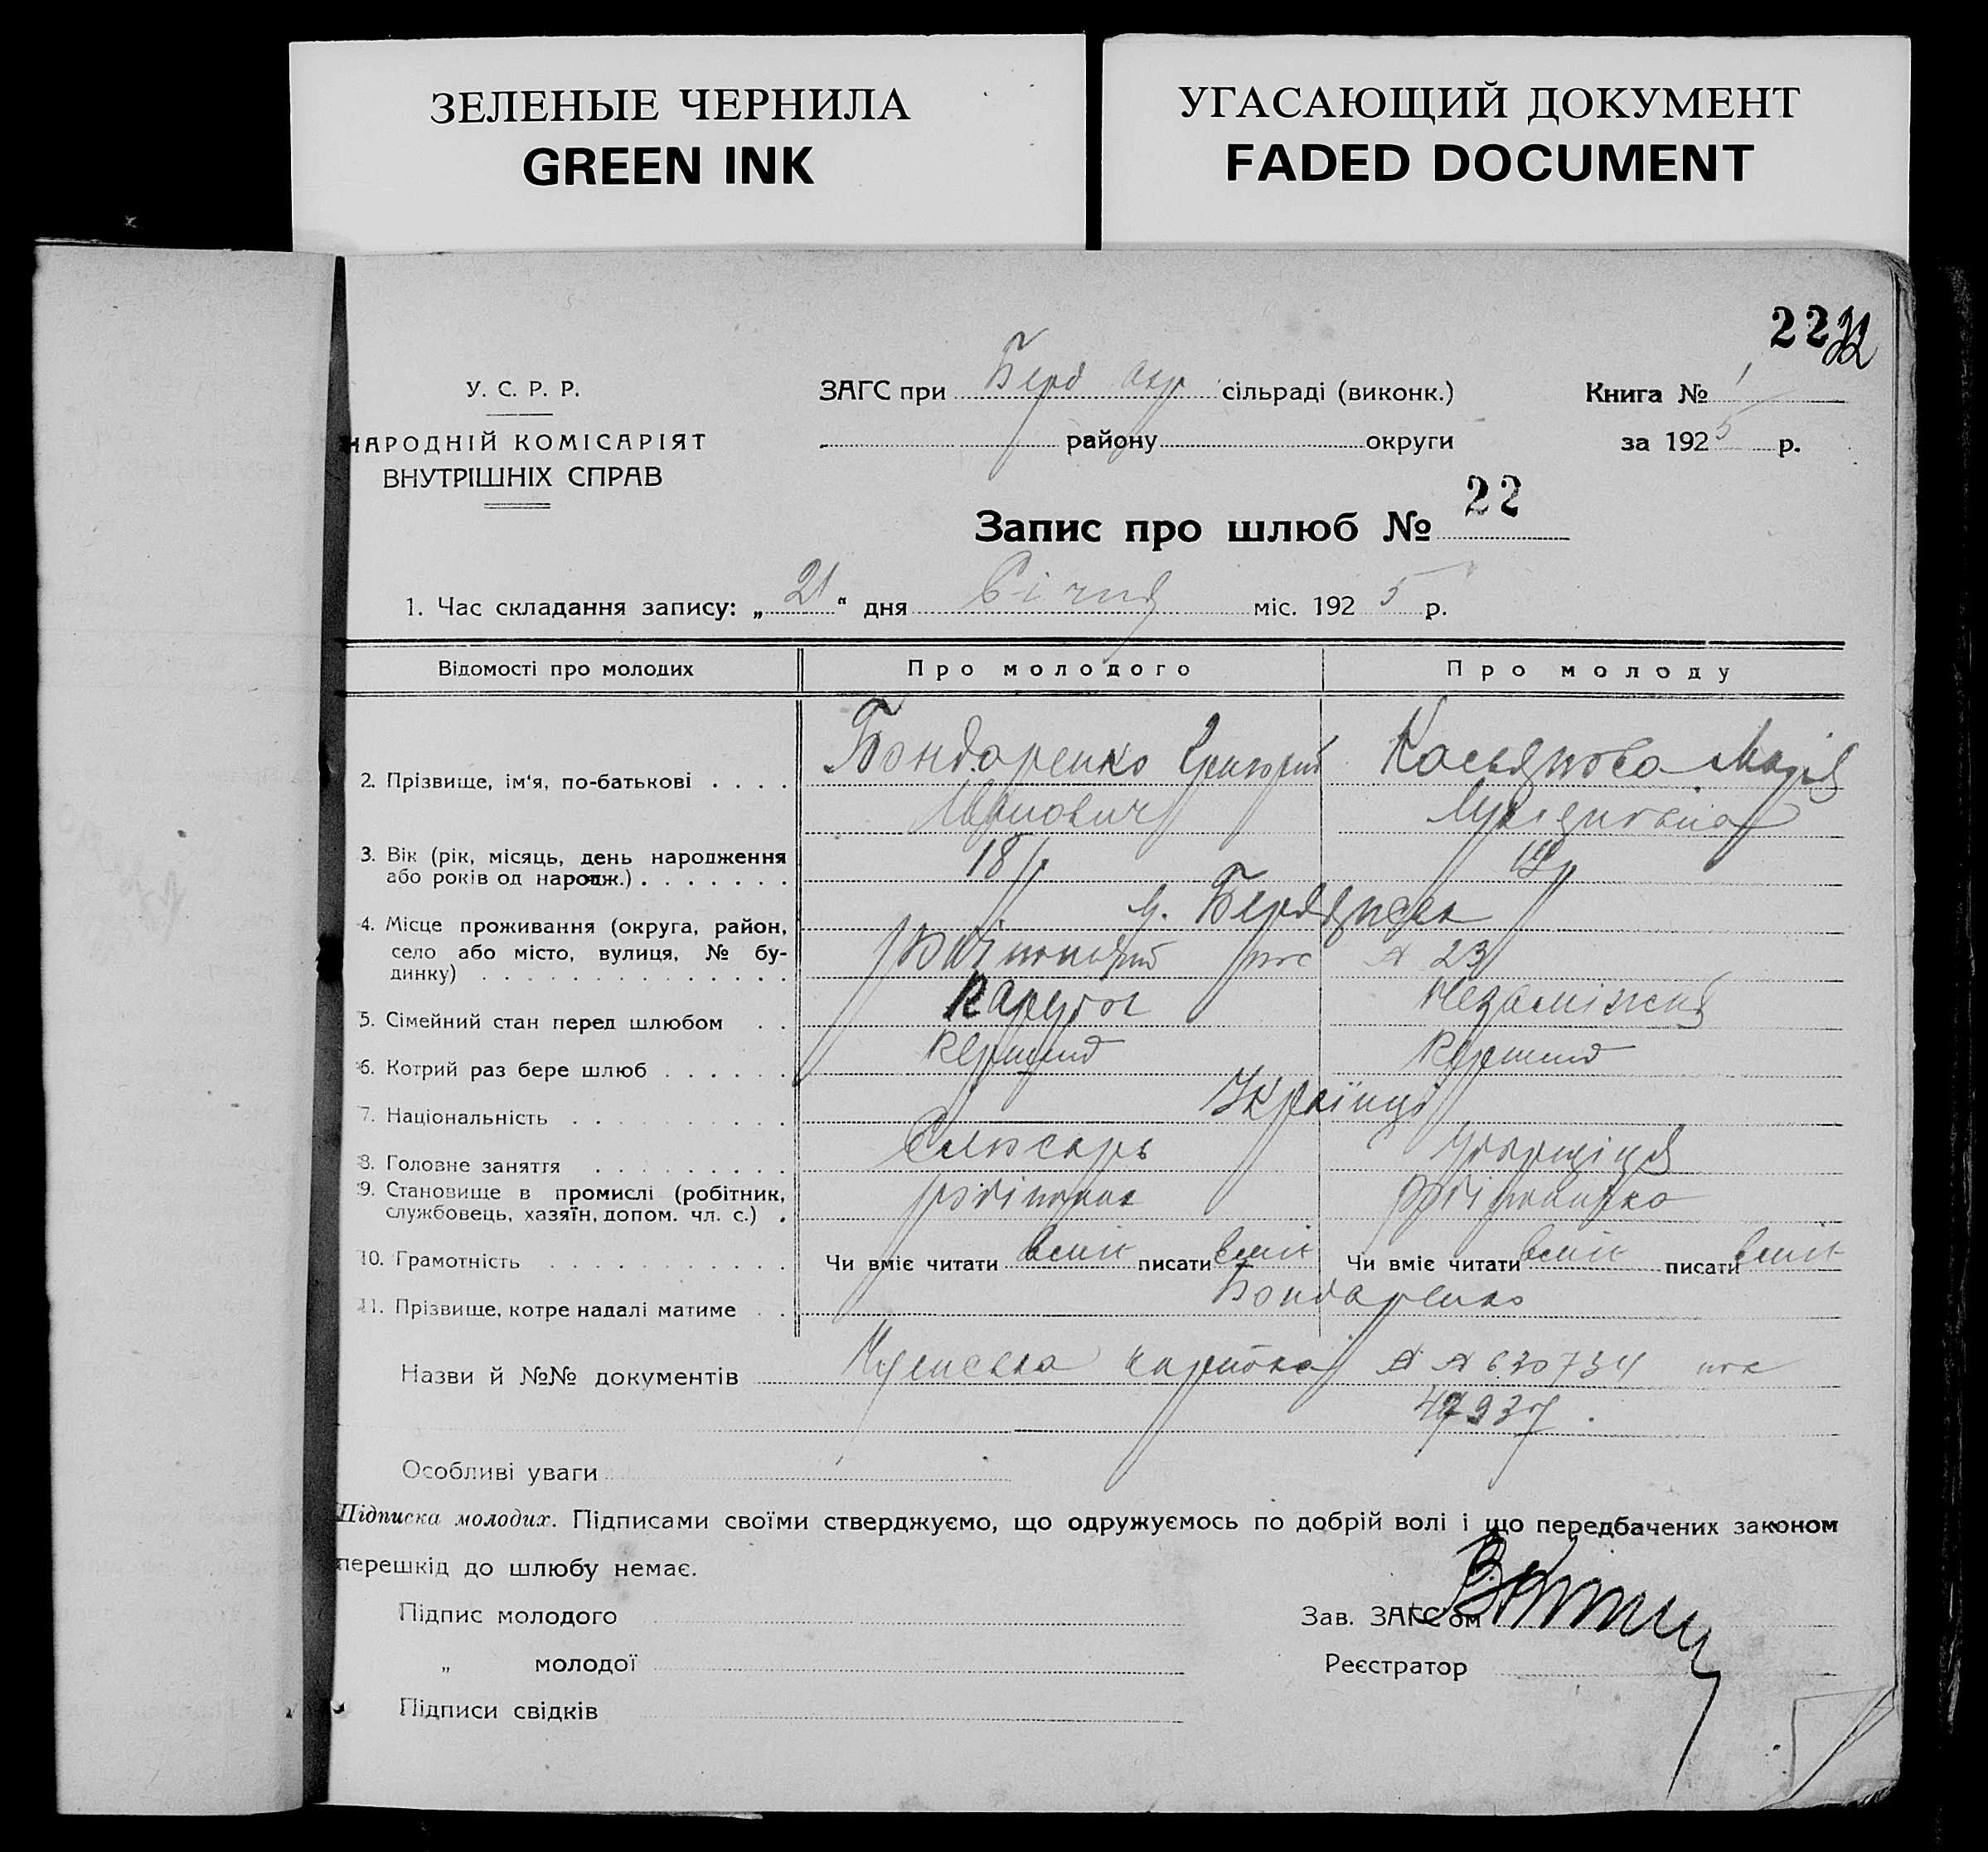 ЗЕЛЕНЫЕ ЧЕРНИЛА
GREEN INK
УГАСАЮЩИЙ ДОКУМЕНТ
FADED DOCUMENT
22
У. С. Р. Р.
НАРОДНІЙ КОМІСАРІЯТ
ВНУТРІШНІХ СПРАВ
ЗАГС при Берд Окр сільраді (виконк.)
району округи
Книга № 1
за 1925 р.
Запис про шлюб № 22
1. Час складання запису: „21“ дня Січня міс. 1925 р.
Відомості про молодих Про молодого Про молоду
2. Прізвище, ім'я, по-батькові Бондаренко Григорій Касьянова Марія
3. Вік (рік, місяць, день народження
або років од народж.) 18 р 19 р
4. Місце проживання (округа, район, м. Бердянськ
село або місто, вулиця, № бу-
динку) Робітничий № 23
5. Сімейний стан перед шлюбом Парубок Незаміжня
6. Котрий раз бере шлюб Перший Перший
7. Національність Українці
8. Головне заняття Слюсарь
9. Становище в промислі (робітник,
службовець, хазяїн, допом. чл. с.) робітник робітниця
10. Грамотність Чи вміє читати вміє писати вміє Чи вміє читати вміє писати вміє
11. Прізвище, котре надалі матиме Бондаренко
Назви й №№ документів Членська карточка № 630734
47937
Особливі уваги
Підписка молодих. Підписами своїми стверджуємо, що одружуємось по добрій волі і що передбачених законом
перешкід до шлюбу немає.
Підпис молодого
„ молодої
Підписи свідків
Зав. ЗАГС'ом
Реєстратор